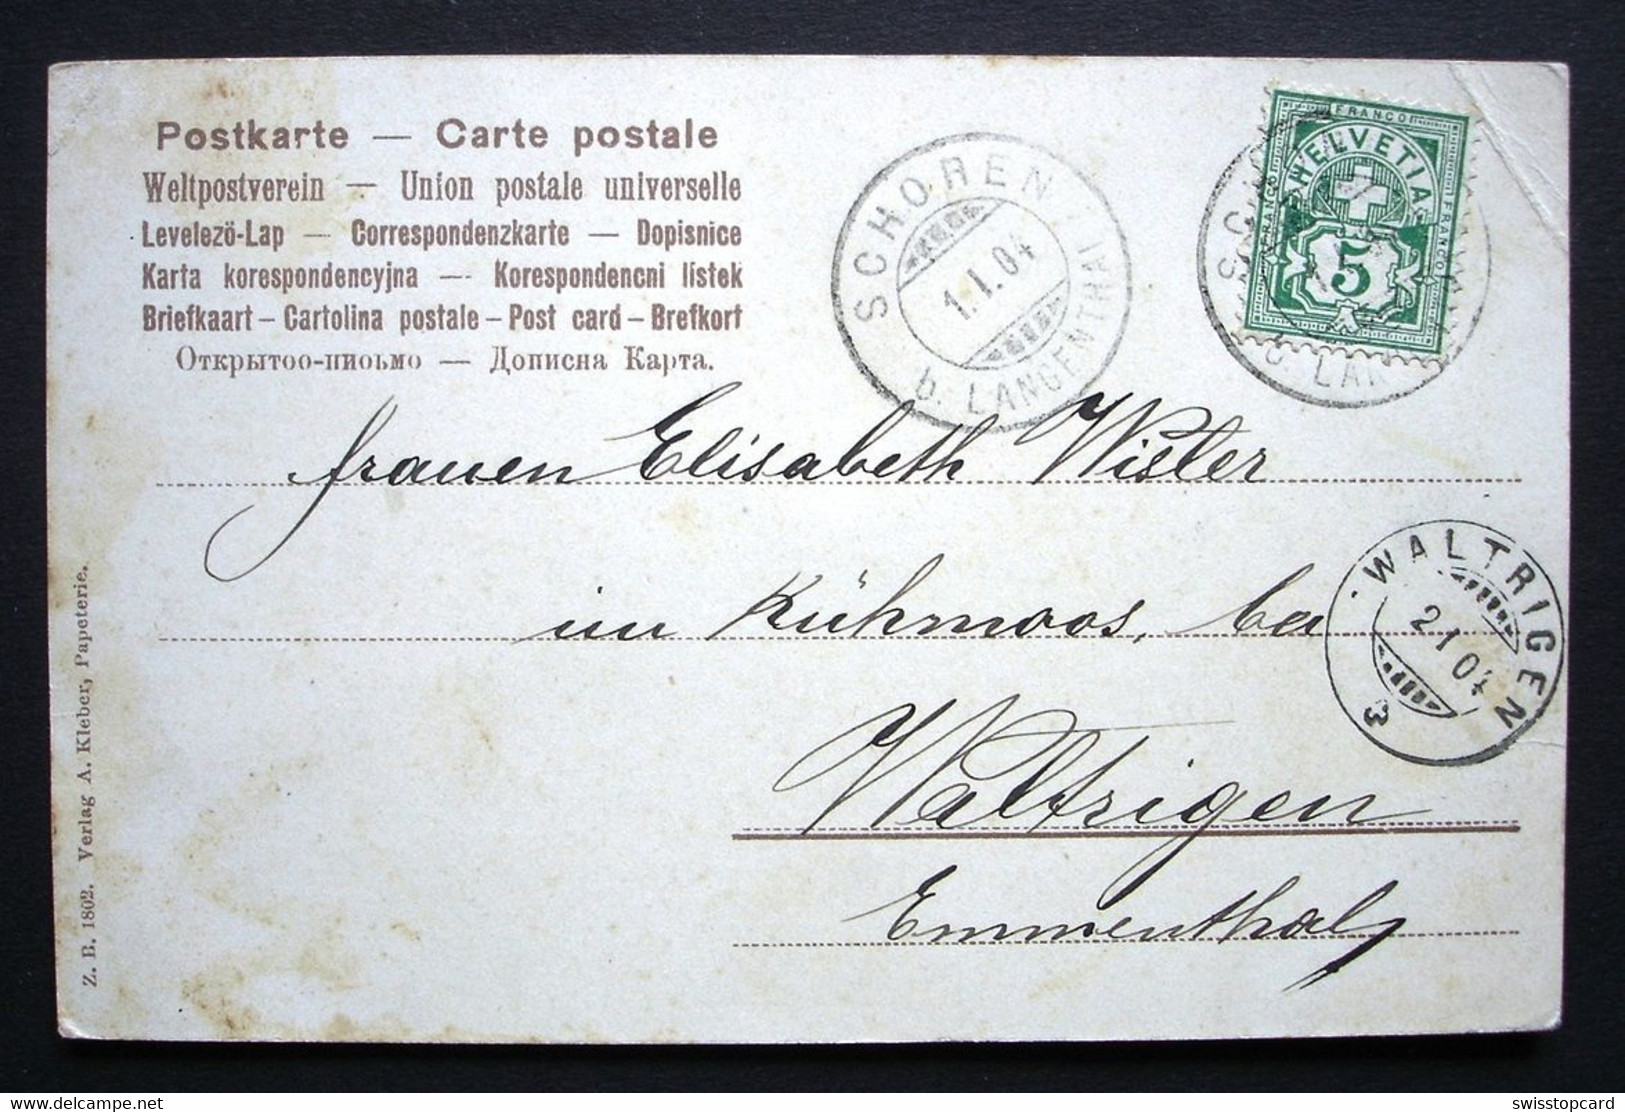 Postkarte — Carte postale
Weltpostverein — Union postale universelle
Levelezö-Lap — Correspondenzkarte — Dopisnice
Karta korespondencyjna — Korespondencni listek
Briefkaart – Cartolina postale – Post card – Brefkort
Открытоо-пиоьмо — Дописна Карта.
SCHOREN
1.I.04
b. LANGENTHAL
FRANCO
HELVETIA
FRANCO
FRANCO
5
frauen Elisabeth Wisler
im Kühmoos, bei
Waltrigen
Emmenthal
WALTRIGEN
2 I 04
3
Z. B. 1802. Verlag A. Kleber, Papeterie.
delcampe.net
swisstopcard